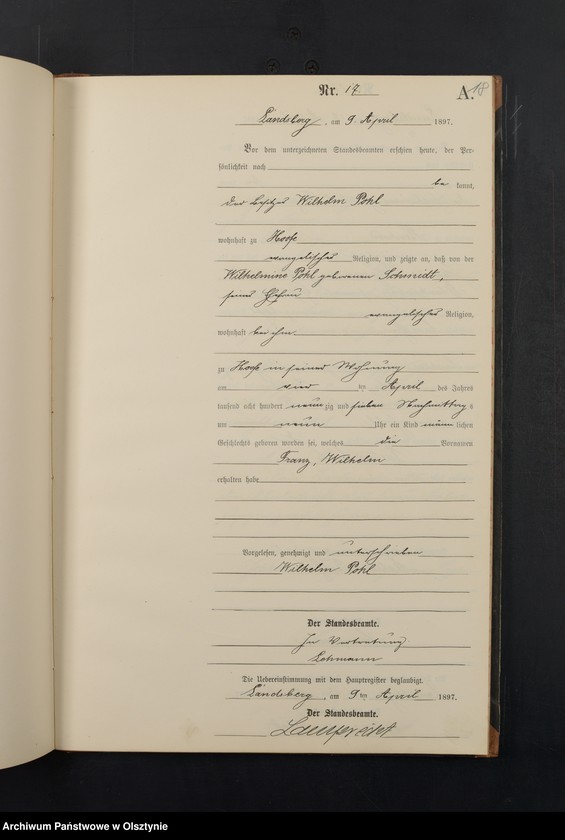 Nr. 17.
A. 18
Landsberg, am 9 April 1897.
Vor dem unterzeichneten Standesbeamten erschien heute, der Per-
sönlichkeit nach
be kannt,
der Besitzer Wilhelm Pohl
wohnhaft zu
evangelischer Religion, und zeigte an, daß von der
Wilhelmine Pohl geborenen Schmidt,
seiner Ehefrau
evangelischer Religion,
wohnhaft bei ihm
zu in seiner Wohnung
am vier ten April des Jahres
tausend acht hundert neun zig und sieben Nachmittag s
um neun Uhr ein Kind männ lichen
Geschlechts geboren worden sei, welches die Vornamen
Franz, Wilhelm
erhalten habe
Vorgelesen, genehmigt und unterschrieben
Wilhelm Pohl
Der Standesbeamte.
In Vertretung
Die Uebereinstimmung mit dem Hauptregister beglaubigt.
Landsberg, am 9ten April 1897.
Der Standesbeamte.
Archiwum Państwowe w Olsztynie